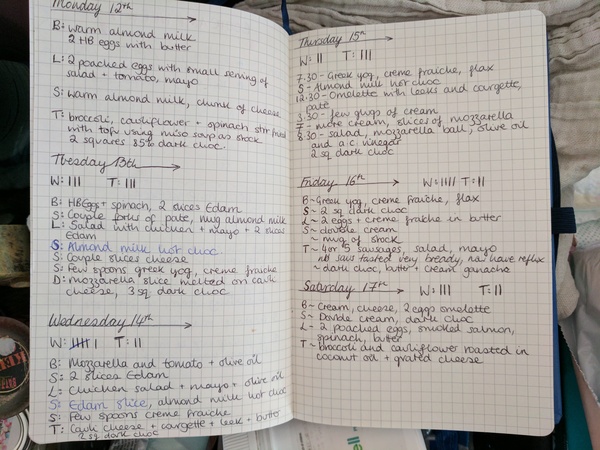 Monday 12th
B: warm almond milk
2 HB eggs with butter
L: 2 poached eggs with small serving of
salad + tomato, mayo
S: warm almond milk, chunk of cheese
T: broccoli, cauliflower + spinach stir fried
with tofu using miso soup as stock
2 squares 85% dark choc.
Tuesday 13th
W: III T: III
B: HB Eggs + spinach, 2 slices Edam
S: Couple forks of pate, mug almond milk
L: Salad with chicken + mayo + 2 slices
Edam
S: Almond milk hot choc.
S: Couple slices cheese
S: Few spoons greek yog, creme fraiche
D: mozzarella slice melted on cauli
cheese, 3 sq dark choc
Wednesday 14th
W: IIII I T: III
B: Mozzarella and tomato + olive oil
S: 2 slices Edam
L: Chicken salad + mayo + olive oil
S: Edam slice, almond milk hot choc
S: Few spoons creme fraiche
T: Cauli cheese + courgette + leek + butter
2 sq. dark choc
Thursday 15th
W: II T: III
7:30 - Greek yog, creme fraiche, flax
S - Almond milk hot choc
12:30 - Omelette with leaks and courgette,
pate
3:30 - few glugs of cream
F - more cream, slices of mozzarella
8:30 - salad, mozzarella ball, olive oil
and a.c. vinegar
2 sq dark choc
Friday 16th W: IIII T: II
B ~ Greek yog, creme fraiche, flax
S ~ 2 sq dark choc
L ~ 2 eggs + creme fraiche in butter
S ~ double cream
~ mug of stock
T ~ 4 or 5 sausages, salad, mayo
no saus tasted very bready, now have reflux
~ dark choc, butter + cream ganache
Saturday 17th W: III T: II
B ~ Cream, cheese, 2 eggs omelette
S ~ Double cream, dark choc
L ~ 2 poached eggs, smoked salmon,
spinach, butter
T ~ broccoli and cauliflower roasted in
coconut oil + grated cheese